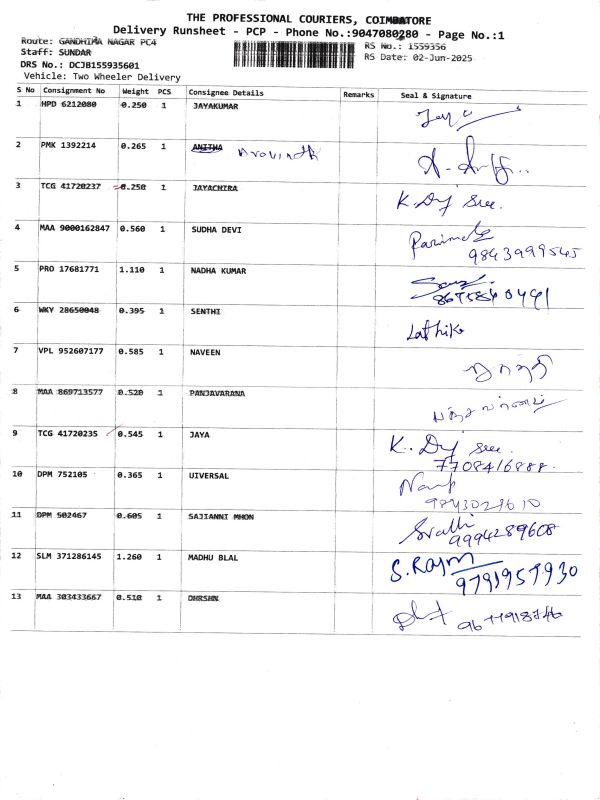 THE PROFESSIONAL COURIERS, COIMBATORE
Delivery Runsheet - PCP - Phone No.:9047080280 - Page No.:1
Route: GANDHIMA NAGAR PC4
RS No.: 1559356
Staff: SUNDAR
RS Date: 02-Jun-2025
DRS No.: DCJB155935601
Vehicle: Two Wheeler Delivery
S No Consignment No Weight PCS Consignee Details Remarks Seal & Signature
1 HPD 6212080 0.250 1 JAYAKUMAR
2 PMK 1392214 0.265 1 ANITHA Aravinth
3 TCG 41720237 0.250 1 JAYACHIRA K. Dij sree.
4 MAA 9000162847 0.560 1 SUDHA DEVI Parimala
9843999545
5 PRO 17681771 1.110 1 NADHA KUMAR
6 WKY 28650048 0.395 1 SENTHI Lathika
7 VPL 952607177 0.585 1 NAVEEN
8 MAA 869713577 0.520 1 PANJAVARANA
9 TCG 41720235 0.545 1 JAYA K. Dij sree.
7708416888.
10 DPM 752105 0.365 1 UIVERSAL
11 DPM 502467 0.605 1 SAJIANNI MHON
9994289608
12 SLM 371286145 1.260 1 MADHU BLAL S. Rajm
9791957930
13 MAA 303433667 0.510 1 DHRSHN